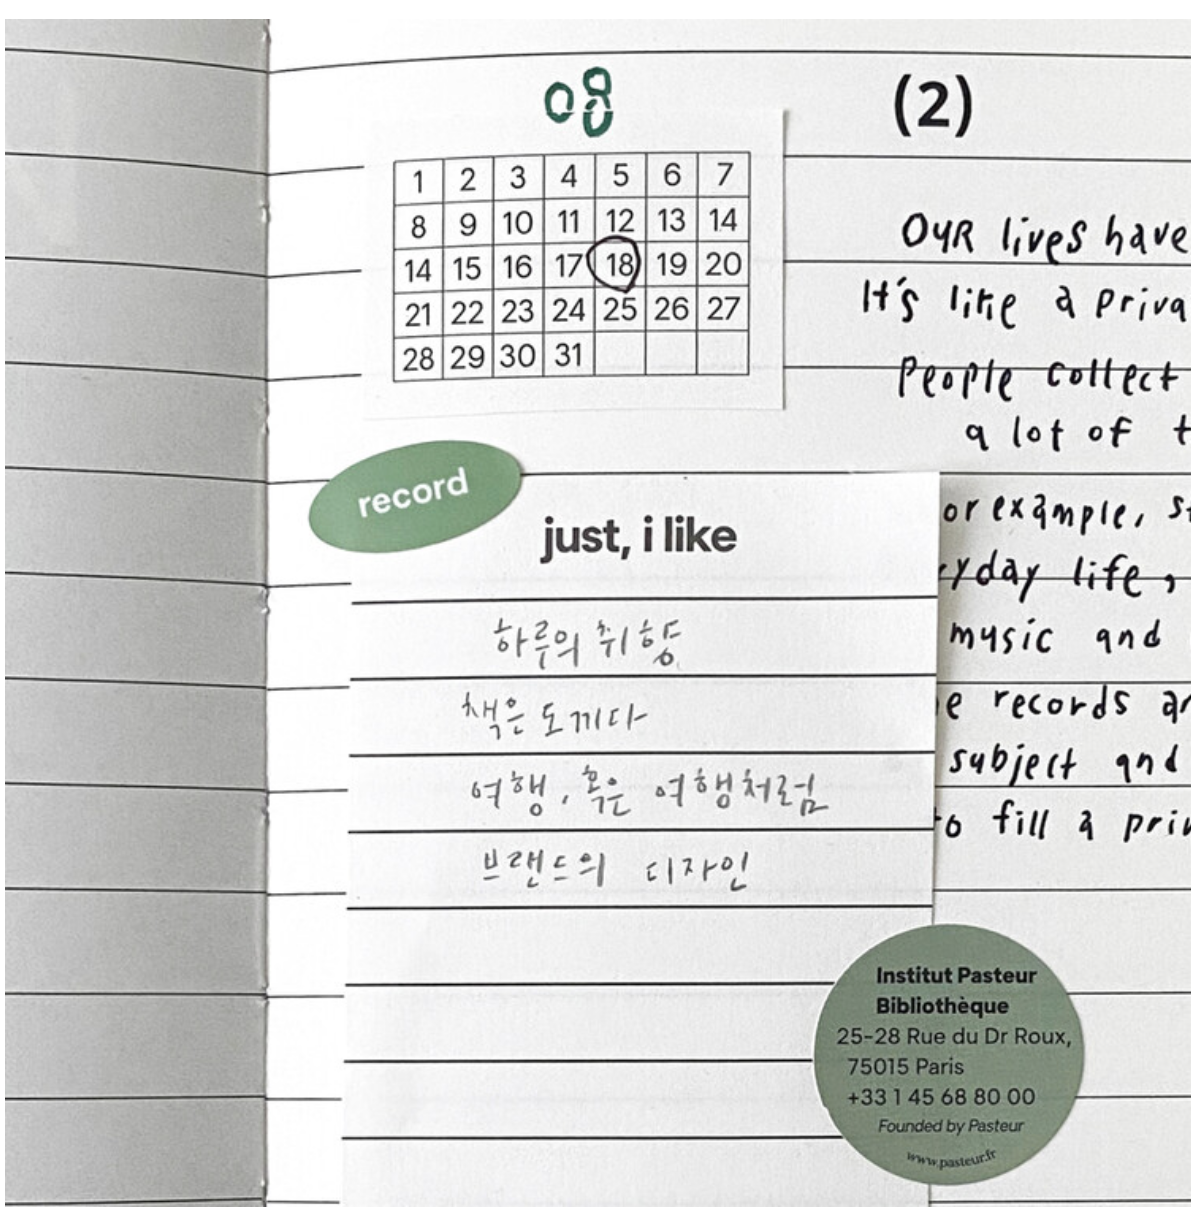 08
(2)
1 2 3 4 5 6 7
8 9 10 11 12 13 14
14 15 16 17 18 19 20
21 22 23 24 25 26 27
28 29 30 31
OUR lives have
It's like a priva
People collect
a lot of t
or example, st
yday life,
music and
e records ar
subject and
to fill a priv
record
just, i like
하루의 취향
책은 도끼다
여행, 혹은 여행처럼
브랜드의 디자인
Institut Pasteur
Bibliothèque
25-28 Rue du Dr Roux,
75015 Paris
+33 1 45 68 80 00
Founded by Pasteur
www.pasteur.fr